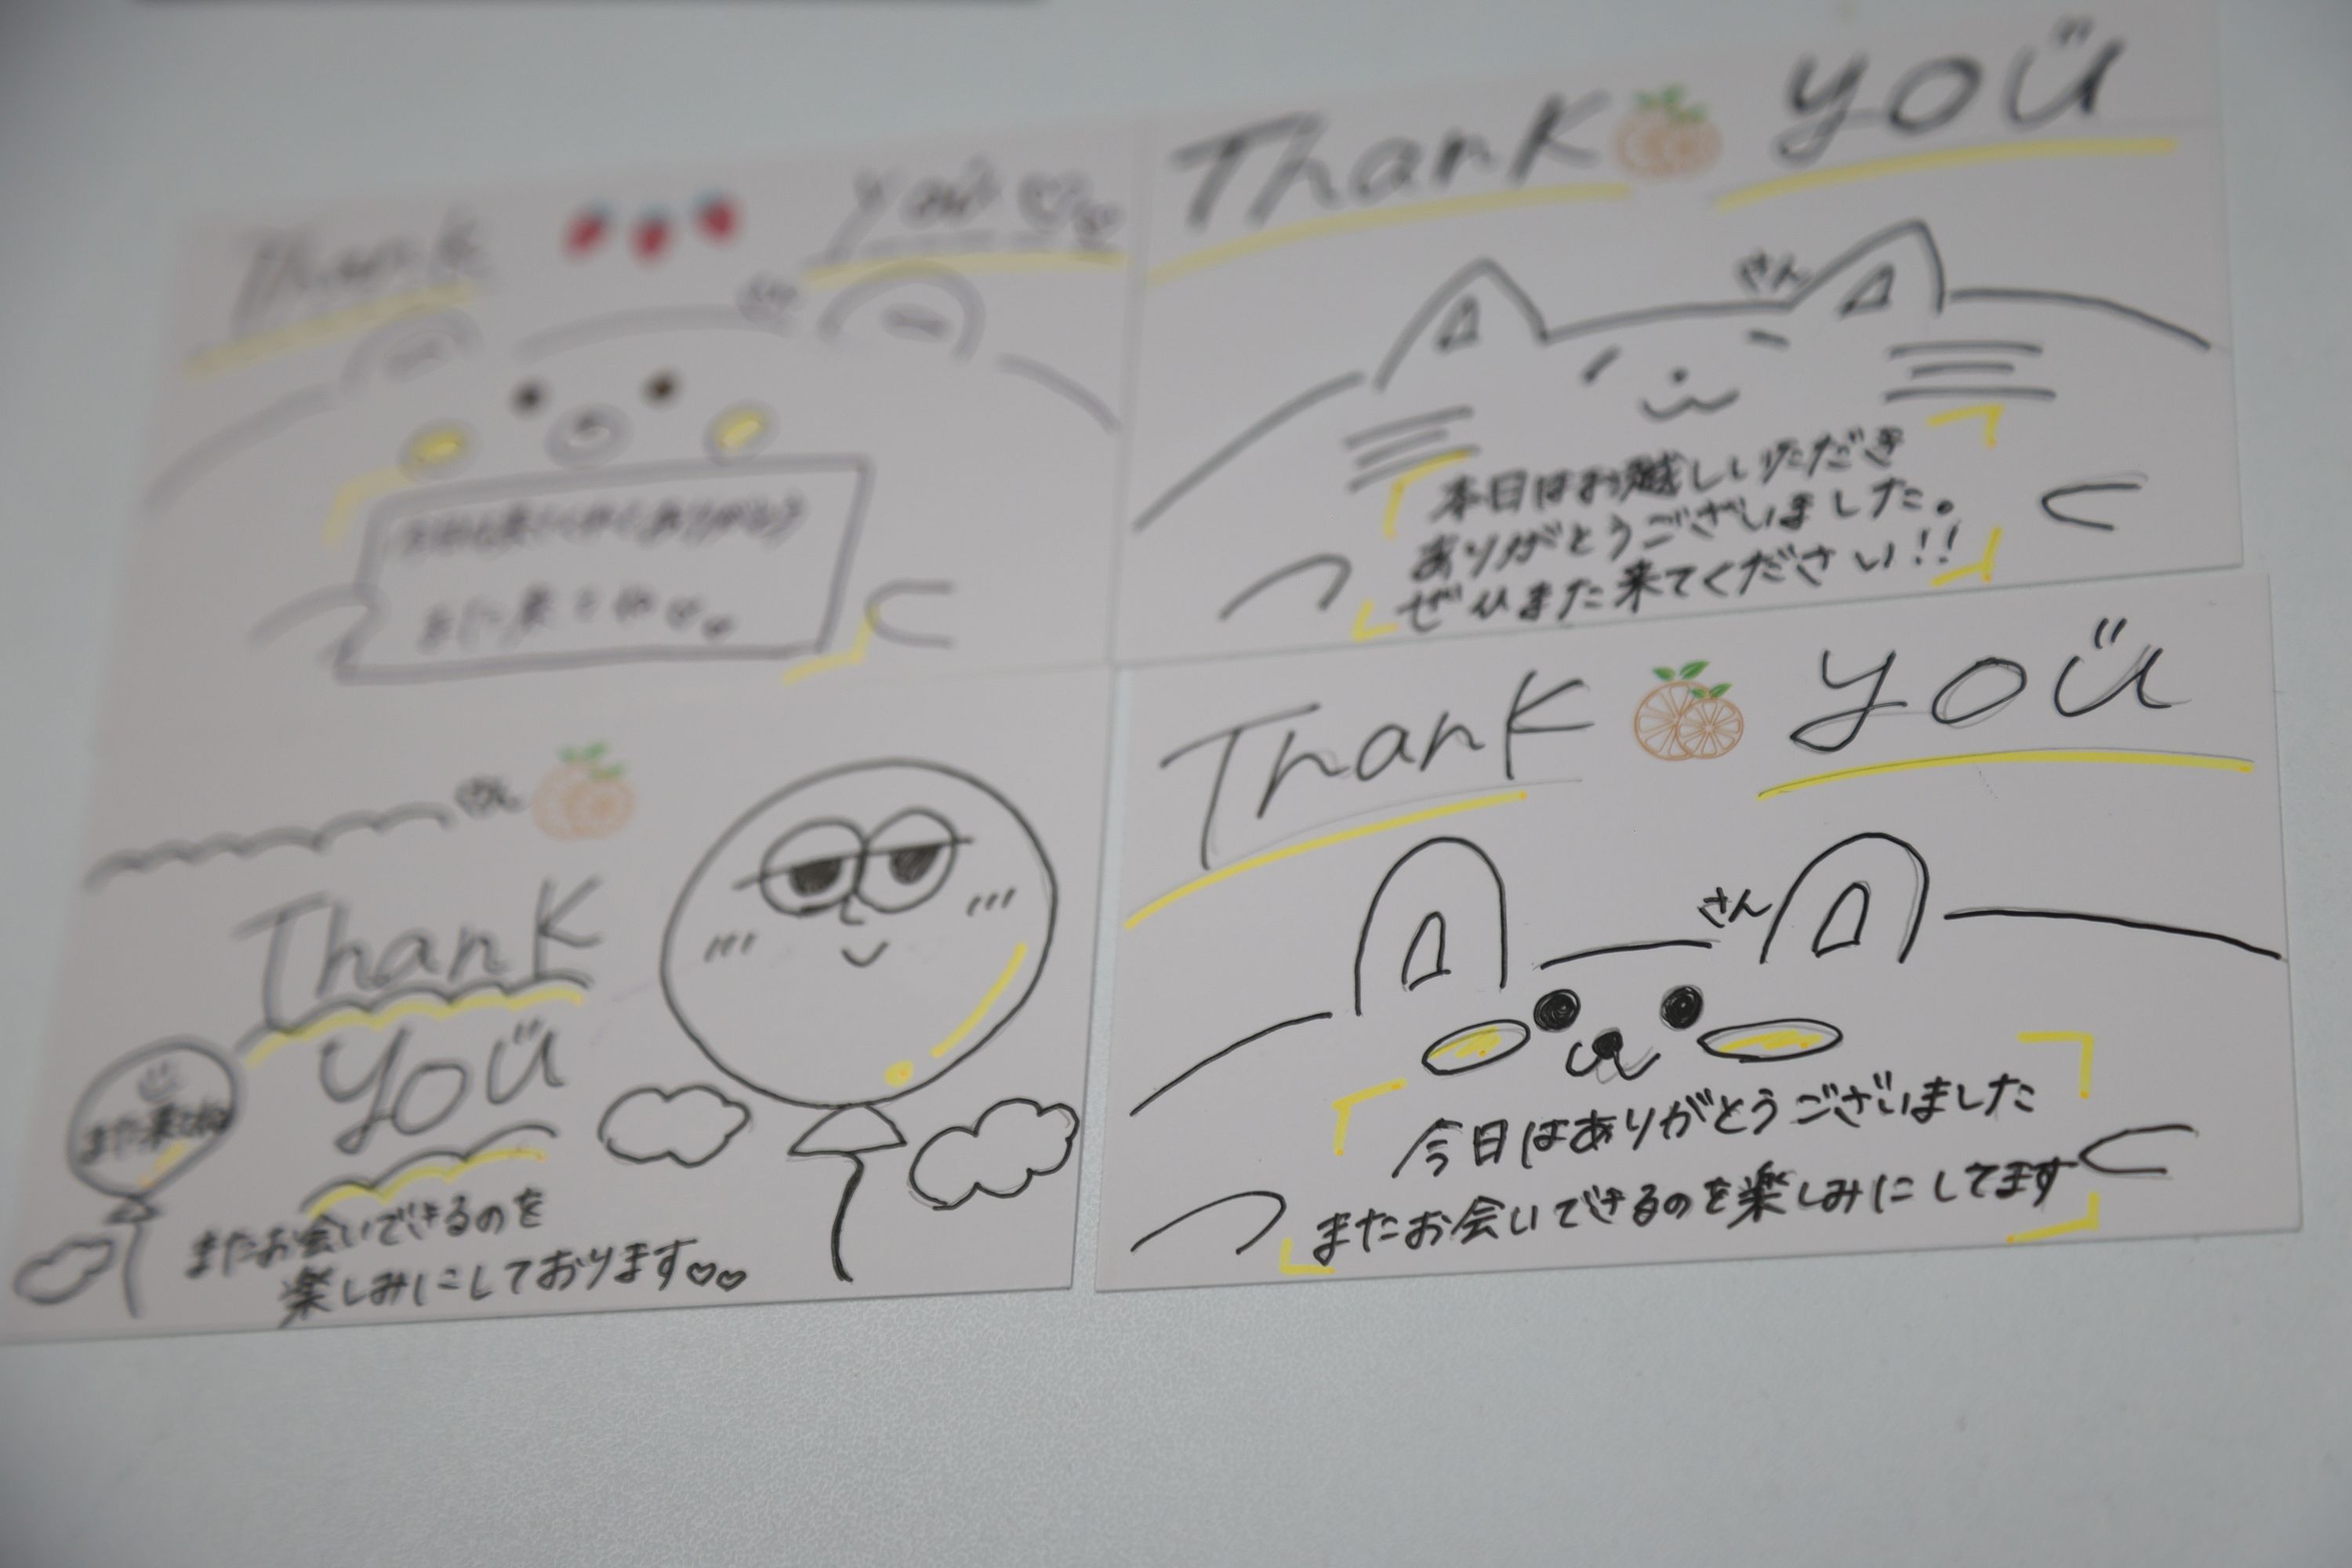 Thank you
さん
また来てね
Thank you
さん
本日はお越しいただき
ありがとうございました。
ぜひまた来てください!!
さん
Thank
you
また来てね
またお会いできるのを
楽しみにしております♡♡
Thank you
さん
今日はありがとうございました
またお会いできるのを楽しみにしてます